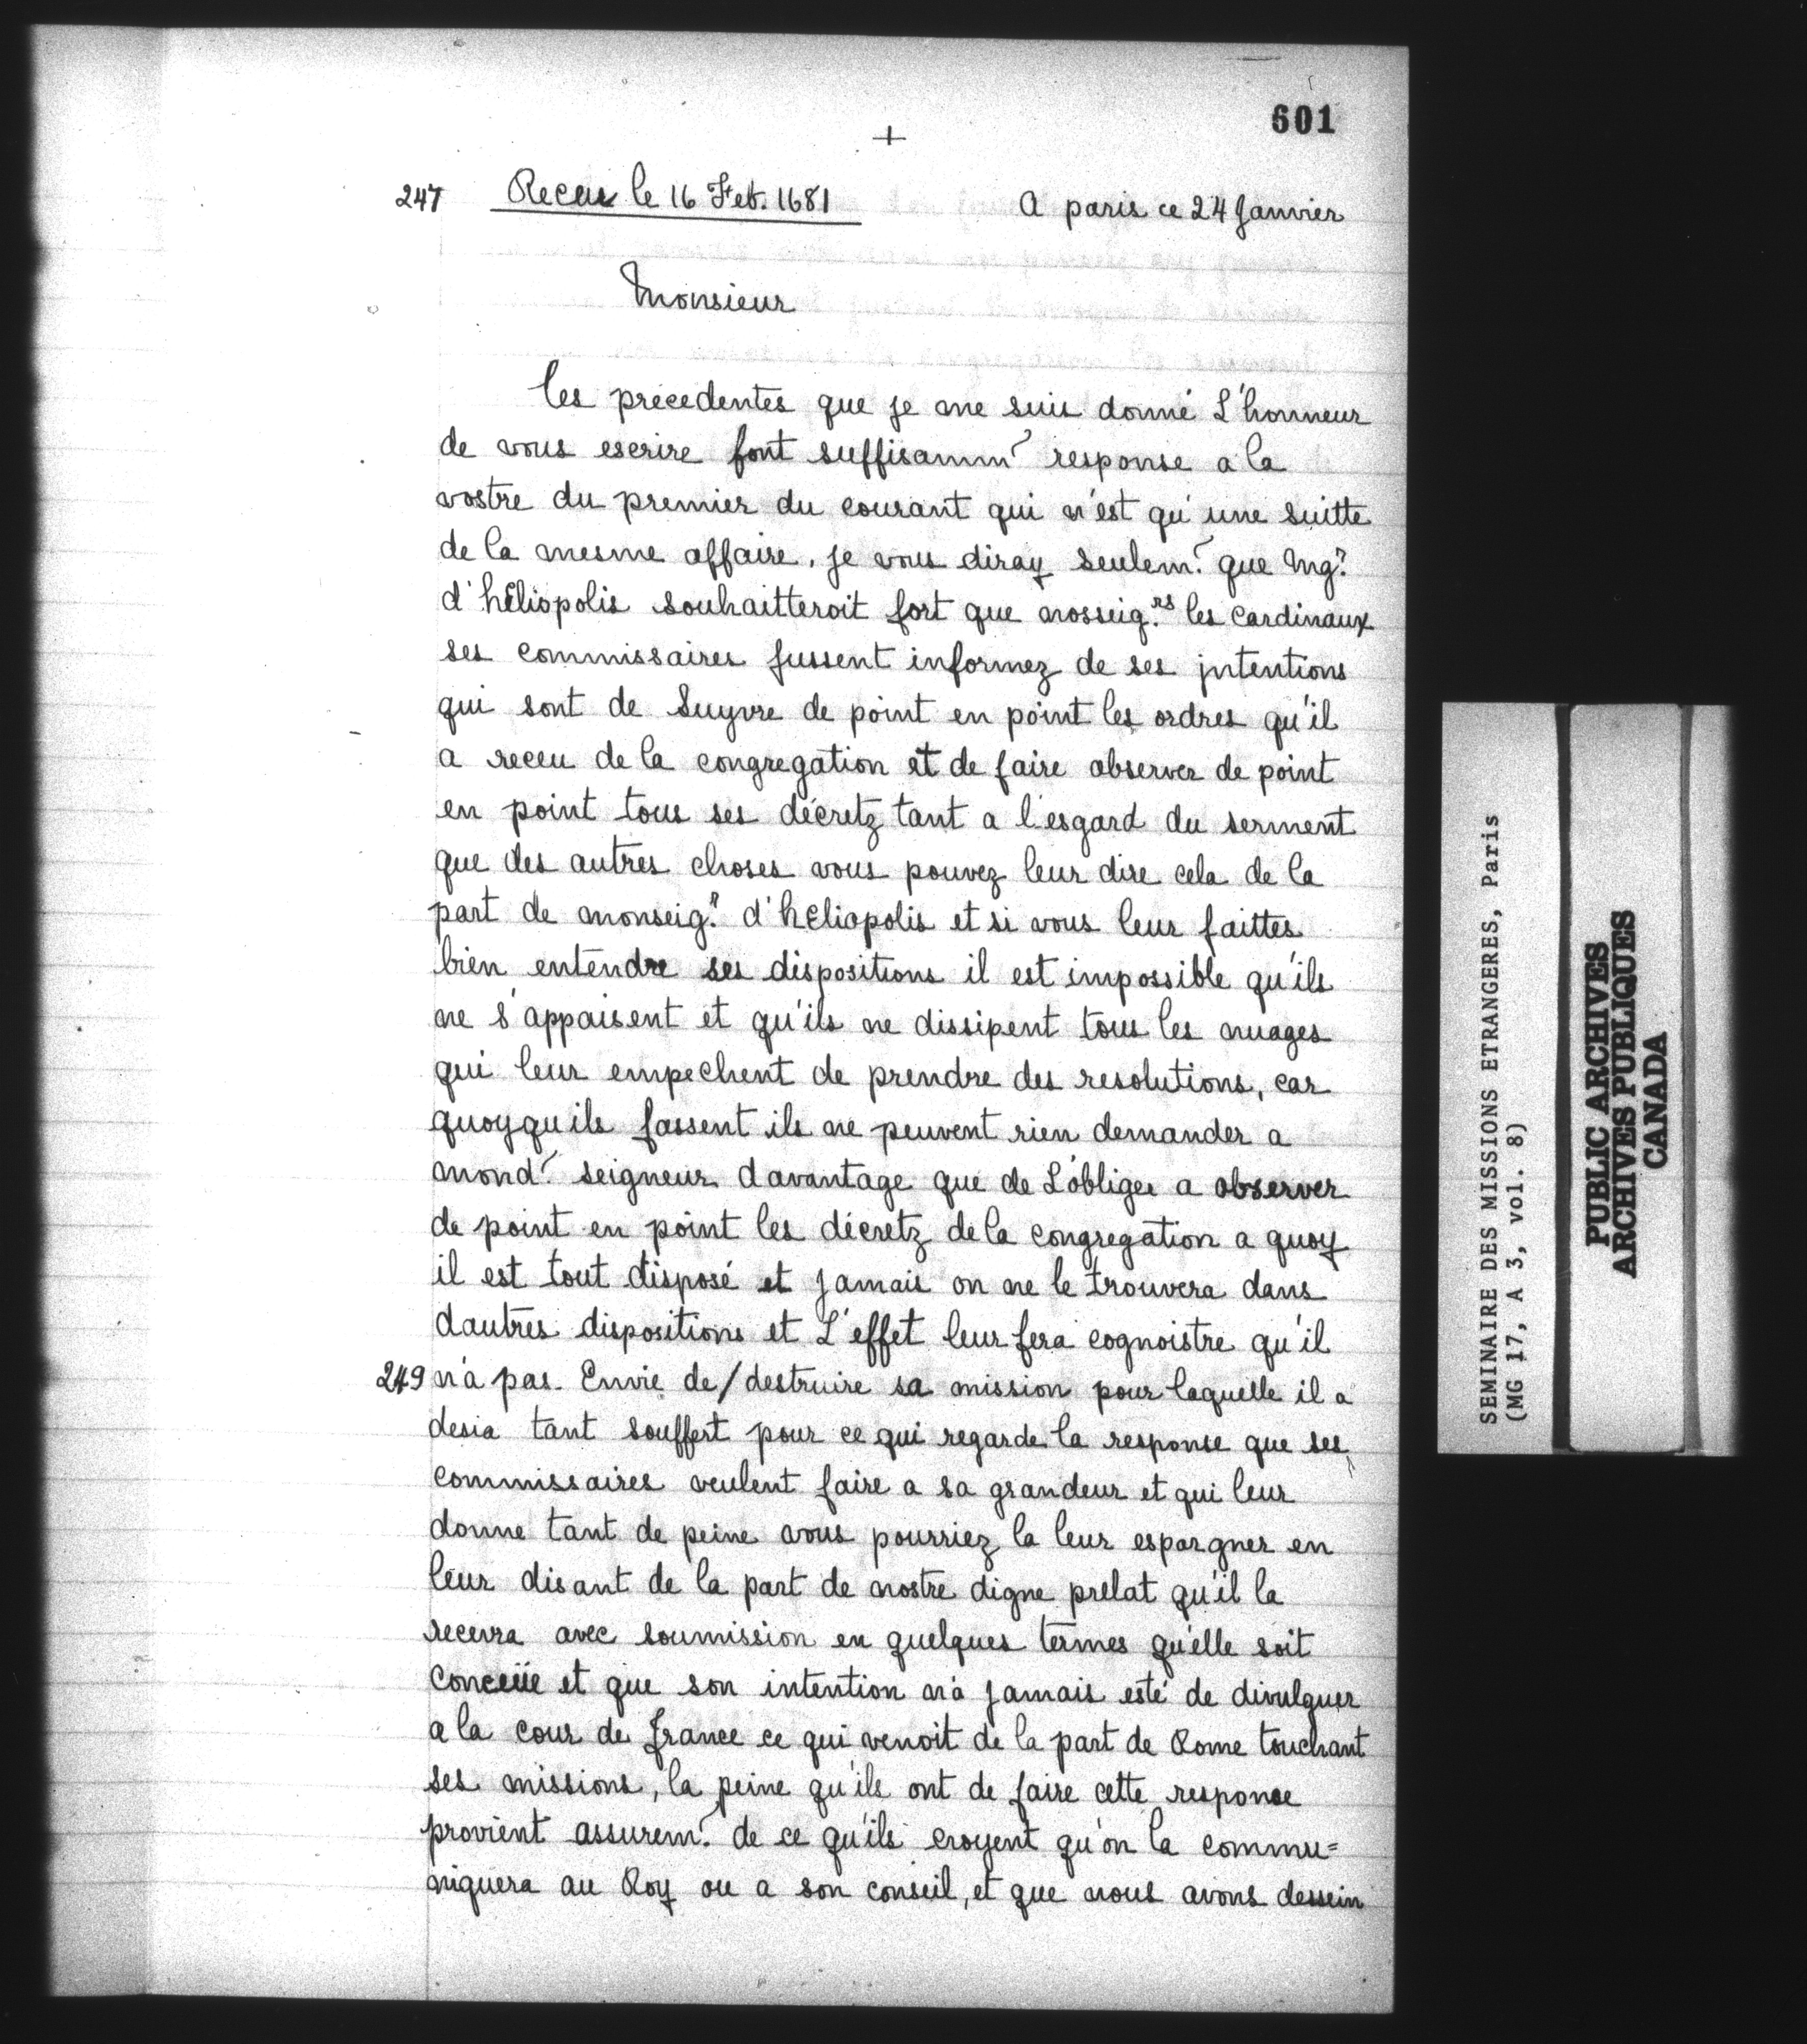 601
+
247 Receu le 16 Feb. 1681 A paris ce 24 Janvier
Monsieur
les precedentes que je me suis donné L'honneur
de vous escrire font suffisamm.t response a la
vostre du premier du courant qui n'est qu'une suitte
de la mesme affaire, je vous diray seulem.t que Mg.r
d'héliopolis souhaitteroit fort que nosseig.rs les Cardinaux
ses commissaires fussent informez de ses jntentions
qui sont de Suyvre de point en point les ordres qu'il
a receu de la congregation et de faire observer de point
en point tous ses décretz tant a l'esgard du serment
que des autres choses vous pouvez leur dire cela de la
part de monseig.r d'héliopolis et si vous leur faittes
bien entendre ses dispositions il est impossible qu'ils
ne s'appaisent et qu'ils ne dissipent tous les nuages
qui leur empechent de prendre des resolutions, car
quoyqu'ils fassent ils ne peuvent rien demander a
mond.t seigneur davantage que de L'obliger a observer
de point en point les décretz de la congregation a quoy
il est tout disposé et jamais on ne le trouvera dans
dautres dispositions et L'effet leur fera cognoistre qu'il
249 n'a pas Envie de/destruire sa mission pour laquelle il a
desia tant souffert pour ce qui regarde la response que ses
commissaires veulent faire a sa grandeur et qui leur
donne tant de peine vous pourriez la leur espargner en
leur disant de la part de nostre digne prelat qu'il la
recevra avec soumission en quelques termes qu'elle soit
Conceüe et que son intention n'a jamais esté de divulguer
a la cour de france ce qui venoit de la part de Rome touchant
ses missions, la peine qu'ils ont de faire cette response
provient assurem.t de ce qu'ils croyent qu'on la commu=
niquera au Roy ou a son conseil, et que nous avons dessein
SEMINAIRE DES MISSIONS ETRANGERES, Paris
(MG 17, A 3, vol. 8)
PUBLIC ARCHIVES
ARCHIVES PUBLIQUES
CANADA